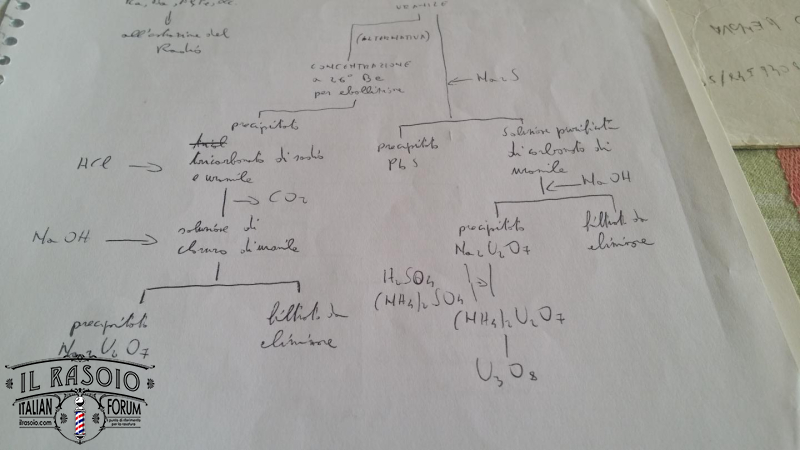 Ra, Na, 
all'estrazione del
Radio
URANILE
(ALTERNATIVA)
CONCENTRAZIONE
a 26° Be
per ebollizione
Na2S
precipitato
tricarbonato di sodio
e uranile
HCl
CO2
NaOH
soluzione di
cloruro di uranile
precipitato
Na2U2O7
filtrato da
eliminare
precipitato
PbS
soluzione purificata
di carbonato di
uranile
NaOH
precipitato
Na2U2O7
filtrato da
eliminare
H2SO4
(NH4)2SO4
(NH4)2U2O7
U3O8
IL RASOIO
ITALIAN FORUM
ilrasoio.com